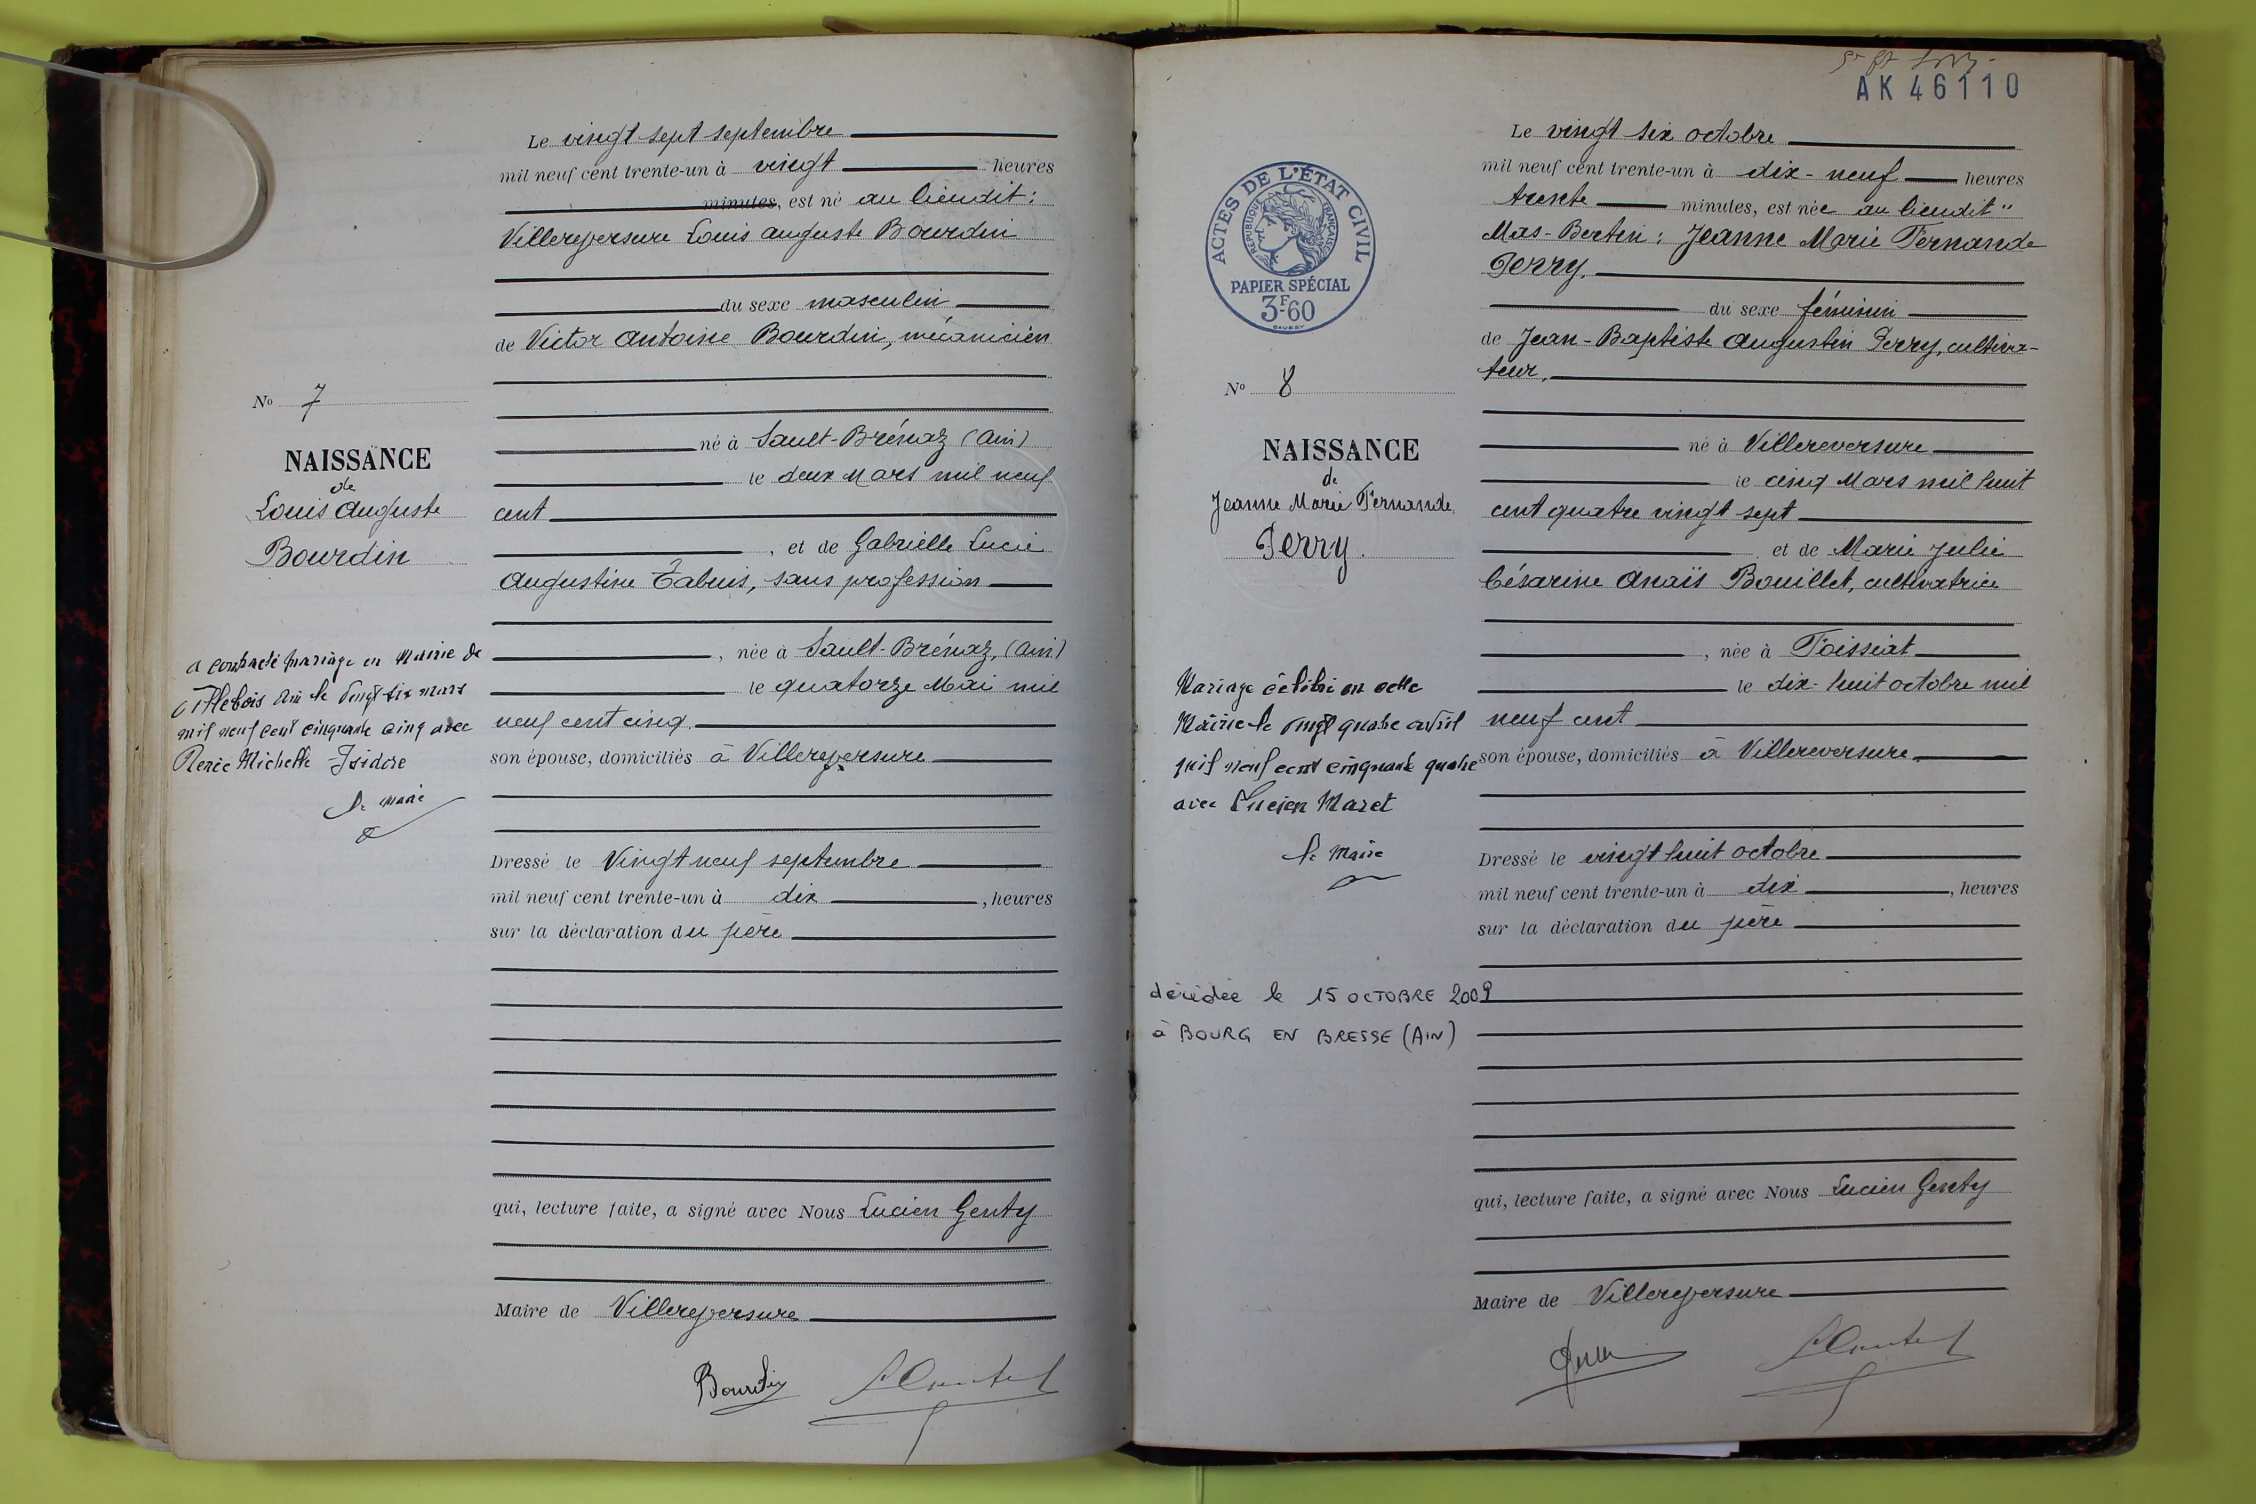 Le vingt sept septembre
mil neuf cent trente-un à vingt heures
minutes, est né au lieudit :
Villereversure Louis Auguste Bourdin
du sexe masculin
de Victor Antoine Bourdin, mécanicien
né à Sault-Brénaz (Ain)
le deux Mars mil neuf
cent
, et de Gabrielle Lucie
Augustine Tabuis, sans profession
, née à Sault-Brénaz, (Ain)
le quatorze Mai mil
neuf cent cinq
son épouse, domiciliés à Villereversure
Dressé le Vingt neuf septembre
mil neuf cent trente-un à dix , heures
sur la déclaration du père
qui, lecture faite, a signé avec Nous Lucien Genty
Maire de Villereversure
Bourdin
No 7
NAISSANCE
de
Louis Auguste
Bourdin
a contracté mariage en Mairie de
le vingt six mars
mil neuf cent cinquante cinq avec
Renée Michelle Isidore
le Maire
AK 46110
ACTES DE L'ÉTAT CIVIL
RÉPUBLIQUE FRANÇAISE
PAPIER SPÉCIAL
3F-60
Le vingt six octobre
mil neuf cent trente-un à dix-neuf heures
trente minutes, est née au lieudit "
Mas-Bertin : Jeanne Marie Fernande
Perry.
du sexe féminin
de Jean-Baptiste Augustin Perry, cultiva-
teur.
né à Villereversure
le cinq Mars mil huit
cent quatre vingt sept
et de Marie Julie
Césarine Anaïs Bouillet, cultivatrice
, née à Foissiat
le dix-huit octobre mil
neuf cent
son épouse, domiciliés à Villereversure
Dressé le vingt huit octobre
mil neuf cent trente-un à dix , heures
sur la déclaration du père
qui, lecture faite, a signé avec Nous Lucien Genty
Maire de Villereversure
No 8
NAISSANCE
de
Jeanne Marie Fernande
Perry.
Mariage célébré en cette
Mairie le vingt quatre avril
mil neuf cent cinquante quatre
avec Lucien Maret
le Maire
décédée le 15 OCTOBRE 2009
à BOURG EN BRESSE (AIN)